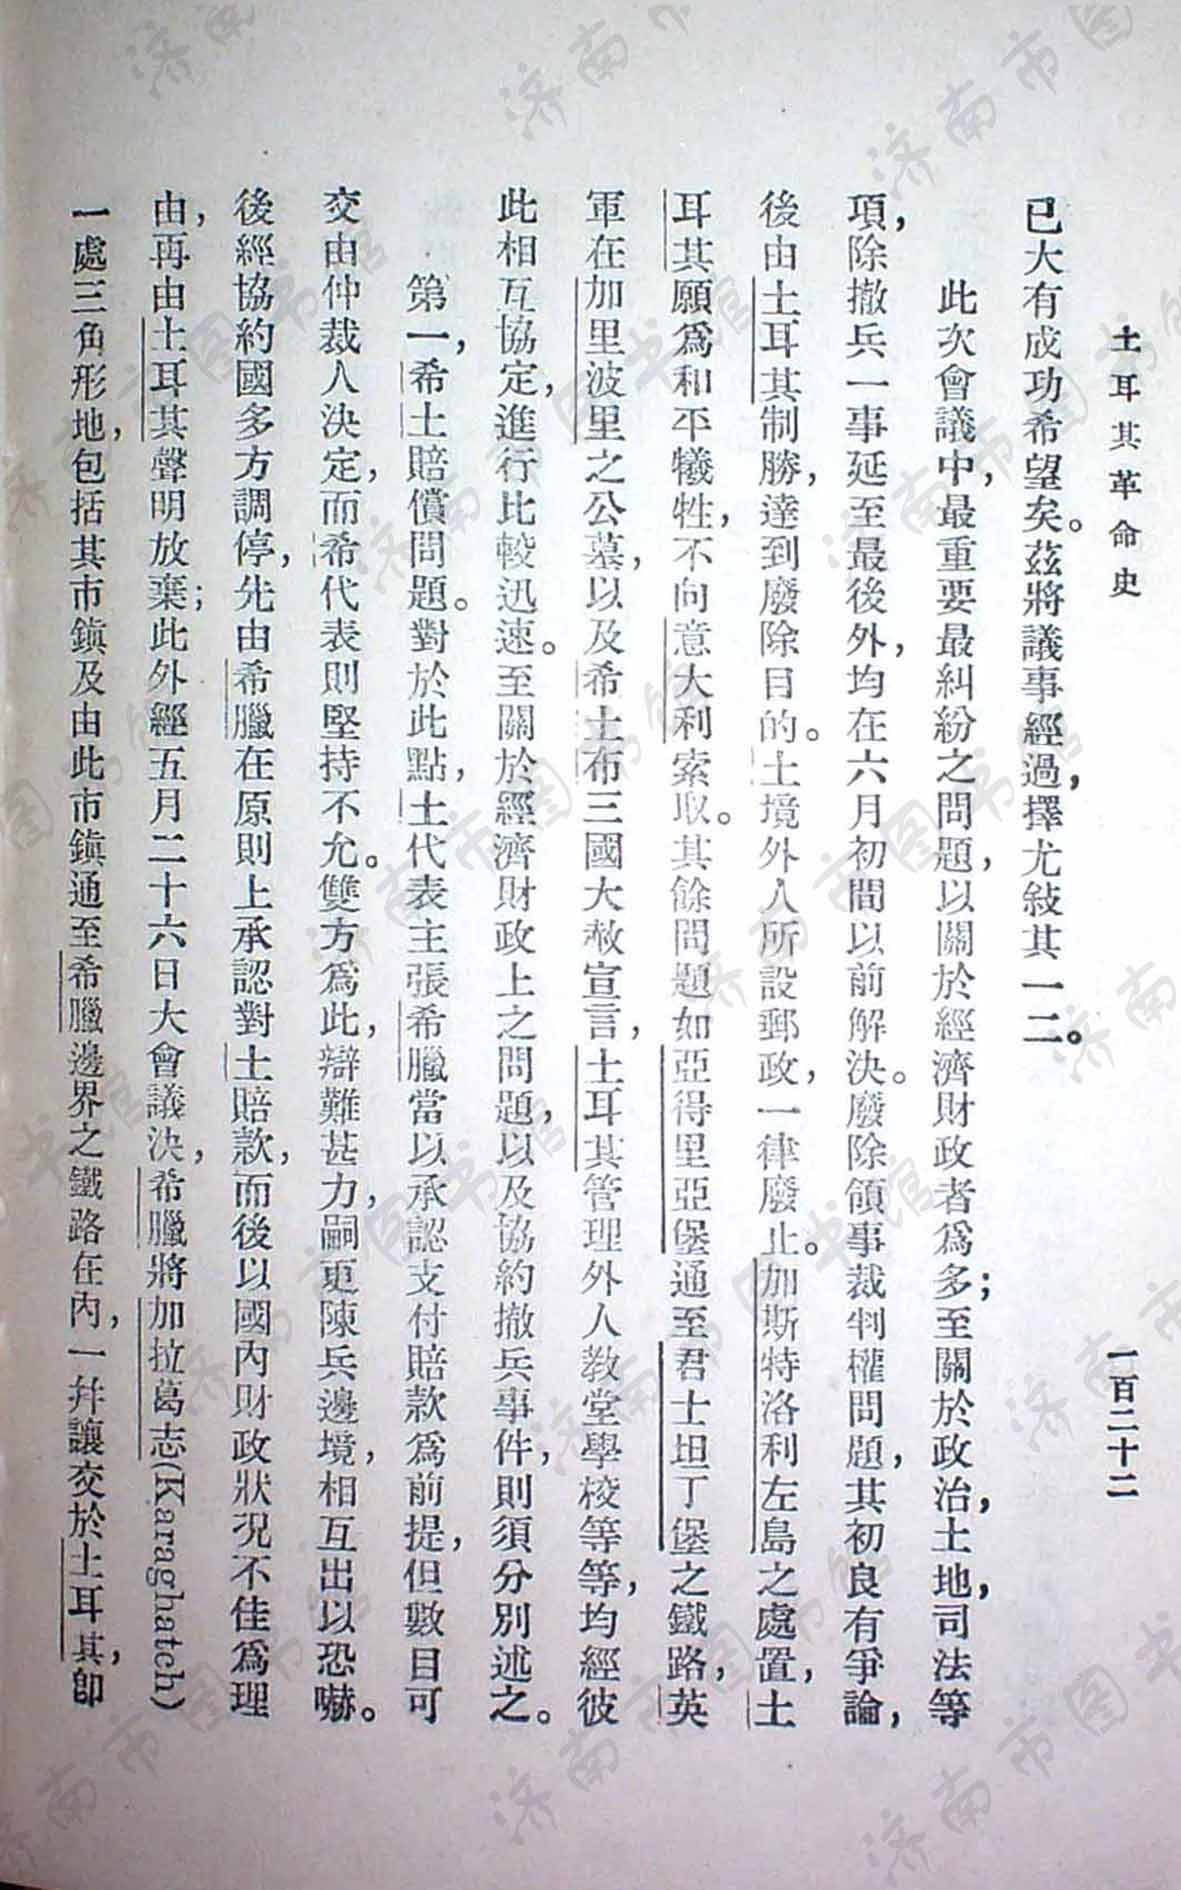 土耳其革命史
一百二十二
已大有成功希望矣。茲將議事經過，擇尤敍其一二。
此次會議中，最重要最糾紛之問題，以關於經濟財政者爲多；至關於政治，土地，司法等
項，除撤兵一事延至最後外，均在六月初間以前解決。廢除領事裁判權問題，其初良有爭論，
後由土耳其制勝，達到廢除目的。土境外人所設郵政，一律廢止。加斯特洛利左島之處置，土
耳其願爲和平犧牲，不向意大利索取。其餘問題如亞得里亞堡通至君士坦丁堡之鐵路，英
軍在加里波里之公墓，以及希土布三國大赦宣言，土耳其管理外人教堂學校等等，均經彼
此相互協定，進行比較迅速。至關於經濟財政上之問題，以及協約撤兵事件，則須分別述之。
第一，希土賠償問題。對於此點，土代表主張希臘當以承認支付賠款爲前提，但數目可
交由仲裁人決定，而希代表則堅持不允。雙方爲此，辯難甚力，嗣更陳兵邊境，相互出以恐嚇。
後經協約國多方調停，先由希臘在原則上承認對土賠款，而後以國內財政狀況不佳爲理
由，再由土耳其聲明放棄；此外經五月二十六日大會議決，希臘將加拉葛志(Karaghatch)
一處三角形地，包括其市鎭及由此市鎭通至希臘邊界之鐵路在內，一幷讓交於土耳其，卽
济南市图书馆